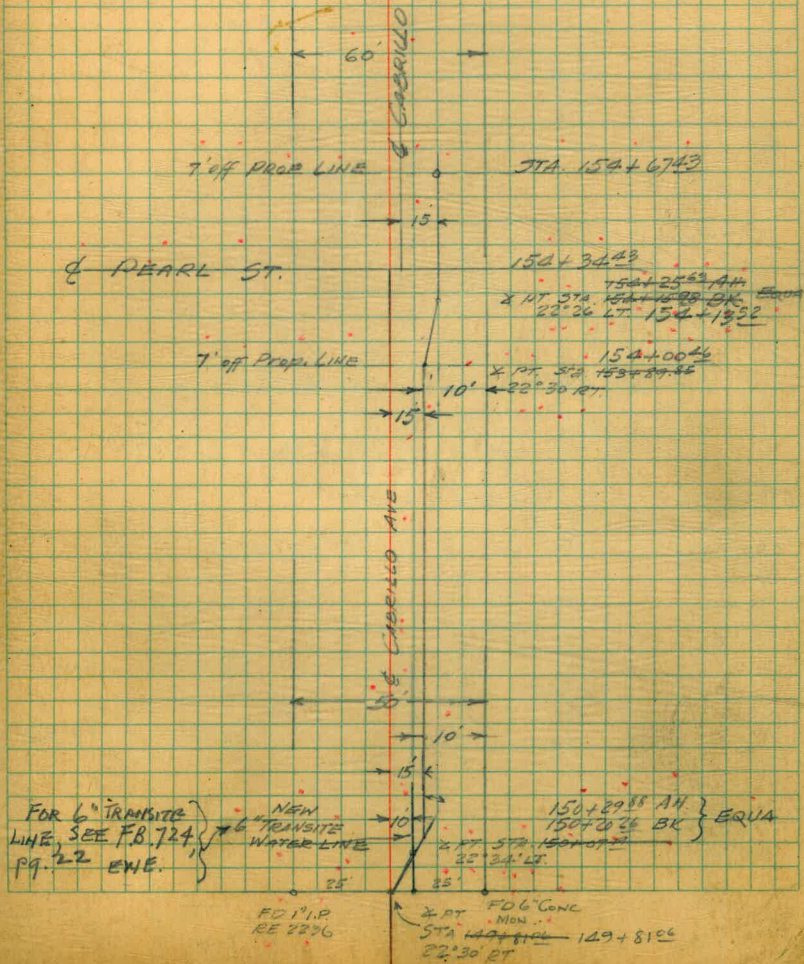 60'
₵ CABRILLO
7' off PROP LINE
STA. 154+67 43
15'
₵ PEARL ST.
154+34 43
154+25 63 AH
∡ PT. STA. 154+15 98 BK EQUA
22°26 LT. 154+13 52
7' off Prop. LINE
154+00 46
∡ PT. STA 153+89.85
10'
22°30 RT.
15'
₵ CABRILLO AVE
50'
10'
15'
FOR 6" TRANSITE
LINE, SEE F.B. 724,
pg. 22 EWE.
NEW
6" TRANSITE
WATER LINE
10'
150+29 88 AH.
150+20 26 BK
EQUA
∡ PT. STA.
22°34' LT.
25'
25'
FD 1" I.P.
RE 2236
∡ PT
STA 149+81 06
149+81 06
22°30' RT
FD 6" CONC
MON.